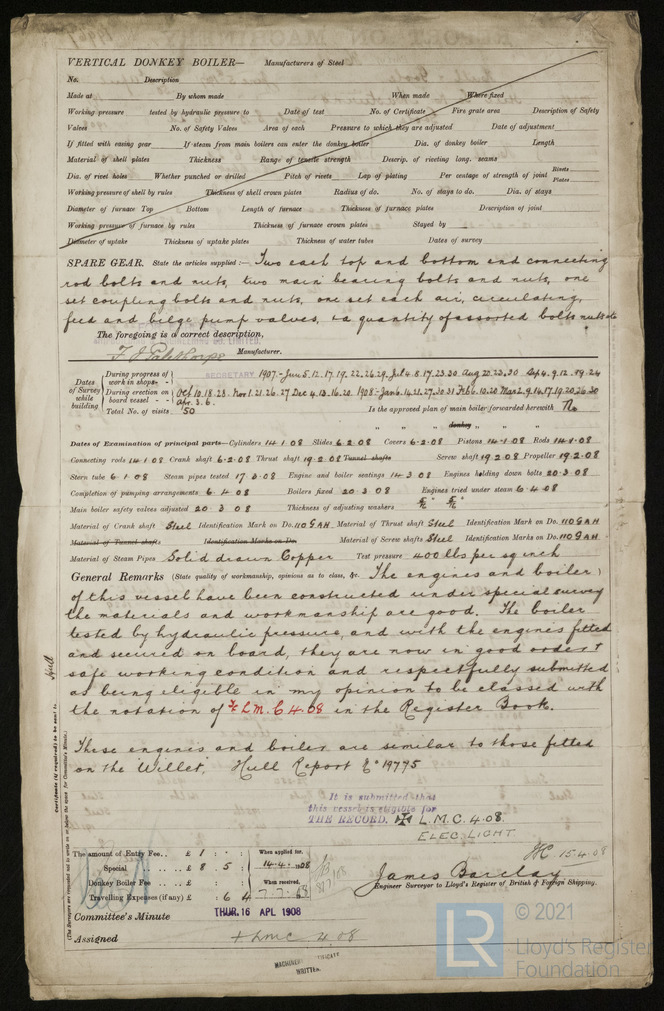 VERTICAL DONKEY BOILER— Manufacturers of Steel
No. Description
Made at By whom made When made Where fixed
Working pressure tested by hydraulic pressure to Date of test No. of Certificate Fire grate area Description of Safety
Valves No. of Safety Valves Area of each Pressure to which they are adjusted Date of adjustment
If fitted with easing gear If steam from main boilers can enter the donkey boiler Dia. of donkey boiler Length
Material of shell plates Thickness Range of tensile strength Descrip. of riveting long. seams
Dia. of rivet holes Whether punched or drilled Pitch of rivets Lap of plating Per centage of strength of joint Rivets Plates
Working pressure of shell by rules Thickness of shell crown plates Radius of do. No. of stays to do. Dia. of stays
Diameter of furnace Top Bottom Length of furnace Thickness of furnace plates Description of joint
Working pressure of furnace by rules Thickness of furnace crown plates Stayed by
Diameter of uptake Thickness of uptake plates Thickness of water tubes Dates of survey
SPARE GEAR. State the articles supplied:— Two each top and bottom end connecting
rod bolts and nuts, two main bearing bolts and nuts, one
set coupling bolts and nuts, one set each air, circulating,
feed and bilge pump valves, & a quantity of assorted bolts nuts &c
The foregoing is a correct description,
Manufacturer.
SECRETARY
Dates of Survey while building
During progress of work in shops - - 1907.- Jun 5.12.17.19.22.26.29. Jul 4.8.17.23.30 Aug 20.23.30 Sep 4.9.12.19.24
During erection on board vessel - - - Oct 10.18.23. Nov 1.21.26.27 Dec 4.13.16.20. 1908- Jan 6.14.21.27.30.31 Feb 6.10.20 Mar 2.9.14.17.19.20.26.30
Apr. 3.6.
Total No. of visits 50 Is the approved plan of main boiler forwarded herewith No
" " " donkey " " "
Dates of Examination of principal parts—Cylinders 14.1.08 Slides 6.2.08 Covers 6.2.08 Pistons 14.1.08 Rods 14.1.08
Connecting rods 14.1.08 Crank shaft 6.2.08 Thrust shaft 19.2.08 Tunnel shafts Screw shaft 19.2.08 Propeller 19.2.08
Stern tube 6.1.08 Steam pipes tested 17.3.08 Engine and boiler seatings 14.3.08 Engines holding down bolts 20.3.08
Completion of pumping arrangements 6.4.08 Boilers fixed 20.3.08 Engines tried under steam 6.4.08
Main boiler safety valves adjusted 20.3.08 Thickness of adjusting washers
Material of Crank shaft Steel Identification Mark on Do. 110 GAH Material of Thrust shaft Steel Identification Mark on Do. 110 GAH
Material of Tunnel shafts Identification Marks on Do. Material of Screw shafts Steel Identification Marks on Do. 110 GAH
Material of Steam Pipes Solid drawn Copper Test pressure 400 lbs per sq inch
General Remarks (State quality of workmanship, opinions as to class, &c. The engines and boiler
of this vessel have been constructed under special survey
the materials and workmanship are good. The boiler
tested by hydraulic pressure, and with the engines fitted
and secured on board, they are now in good order &
safe working condition and respectfully submitted
as being eligible in my opinion to be classed with
the notation of L.M.C 4.08 in the Register Book.
These engines and boiler are similar to those fitted
on the Willet. Hull Report No 19775
It is submitted that
this vessel is eligible for
THE RECORD. ✠ L.M.C. 4.08.
ELEC. LIGHT
15.4.08
Hull
Certificate (if required) to be sent to
(The Surveyors are requested not to write on or below the space for Committee's Minute.)
The amount of Entry Fee.. £ 1 : - : When applied for,
Special .. £ 8 : 5 : 14.4.1908
Donkey Boiler Fee .. £ : : When received,
Travelling Expenses (if any) £ : 6 : 4 7.7.08
James Barclay
Engineer Surveyor to Lloyd's Register of British & Foreign Shipping.
Committee's Minute THUR. 16 APL 1908
Assigned + LMC 4.08
MACHINERY CERTIFICATE
WRITTEN.
LR © 2021
Lloyd's Register
Foundation